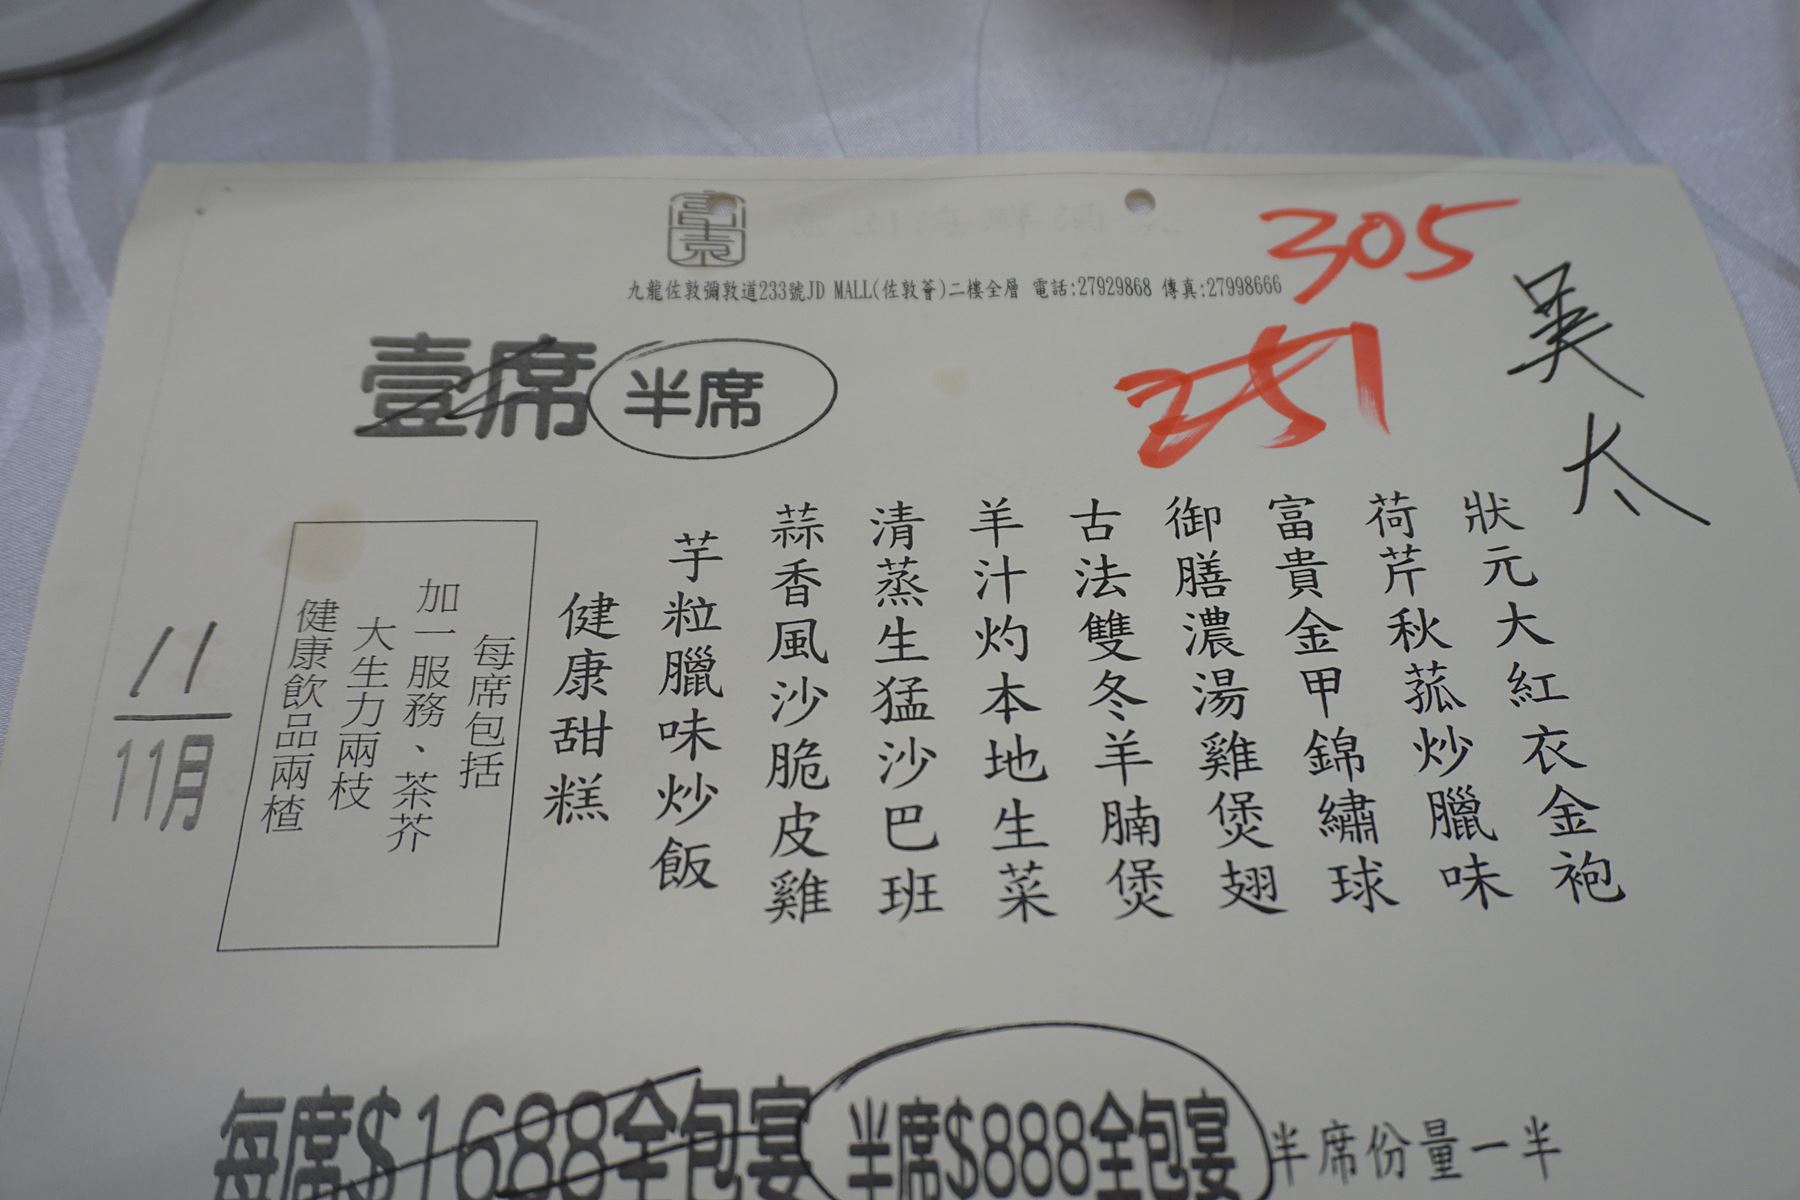 九龍佐敦彌敦道233號JD MALL(佐敦薈)二樓全層 電話:27929868 傳真:27998666
305
251
吳太
壹席 半席
狀元大紅衣金袍
荷芹秋菰炒臘味
富貴金甲錦繡球
御膳濃湯雞煲翅
古法雙冬羊腩煲
羊汁灼本地生菜
清蒸生猛沙巴班
蒜香風沙脆皮雞
芋粒臘味炒飯
健康甜糕
每席包括
加一服務、茶芥
大生力兩枝
健康飲品兩楂
11/11月
每席$1688全包宴 半席$888全包宴 半席份量一半